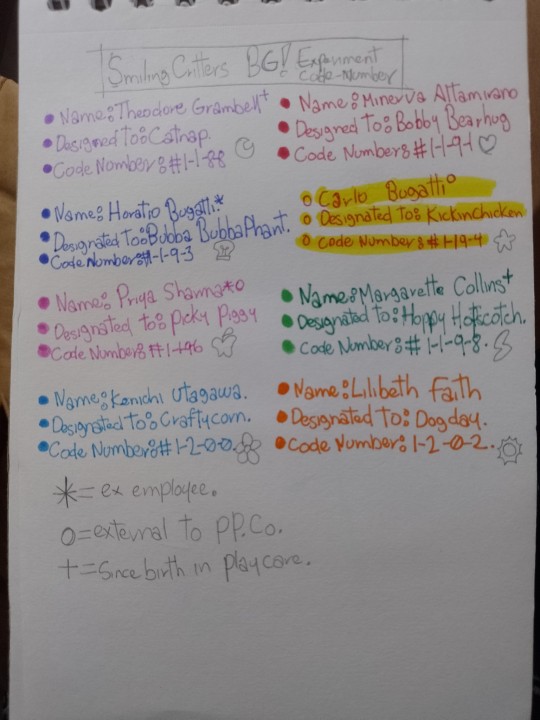 Smiling Critters BG! Experiment
Code-Number
• Name: Theodore Grambell+
• Designed to: Catnap.
• Code Number: #1-1-88
• Name: Minerva Altamirano
• Designed to: Bobby Bearhug
• Code Number: #1-1-9-1
• Name: Horatio Bugatti.*
• Designated to: Bubba BubbaPhant.
• Code Number: #1-1-9-3
○ Carlo Bugatti°
○ Designated to: KickinChicken
○ Code Number: #1-19-4
• Name: Priya Sharma*o
• Designated to: Picky Piggy
• Code Number: #1-196
• Name: Margarette Collins+
• Designated to: Hoppy Hopscotch.
• Code Number: #1-1-9-8.
• Name: Kenichi Utagawa.
• Designated to: Craftycorn.
• Code Number: #1-2-0-0.
• Name: Lilibeth Faith
• Designated to: Dogday.
• Code Number: 1-2-0-2.
*= ex employee.
o=external to PP.Co.
+=Since birth in playcare.